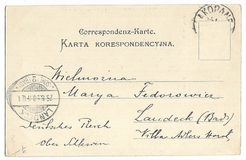 Correspondenz-Karte.
KARTA KORESPONDENCYJNA.
Wielmożna
Marya Fedorowicz
Landeck (Bad)
Villa Adlers Horst
Deutsches Reich
Ober Schlesien